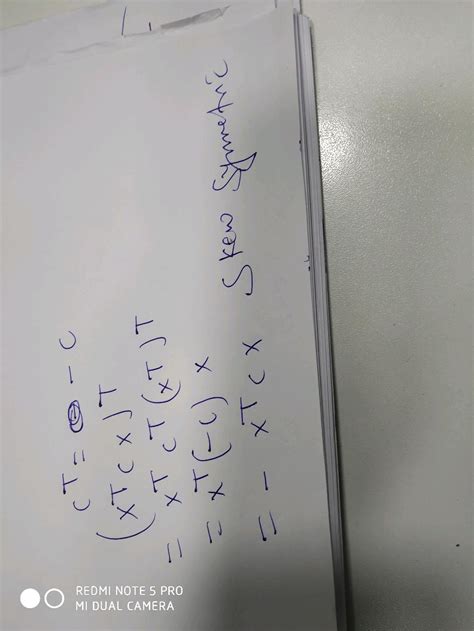 C^T = - C
(x^T C x)^T
= x^T C^T (x^T)^T
= x^T (-C) x
= - x^T C x Skew Symmetric
REDMI NOTE 5 PRO
MI DUAL CAMERA